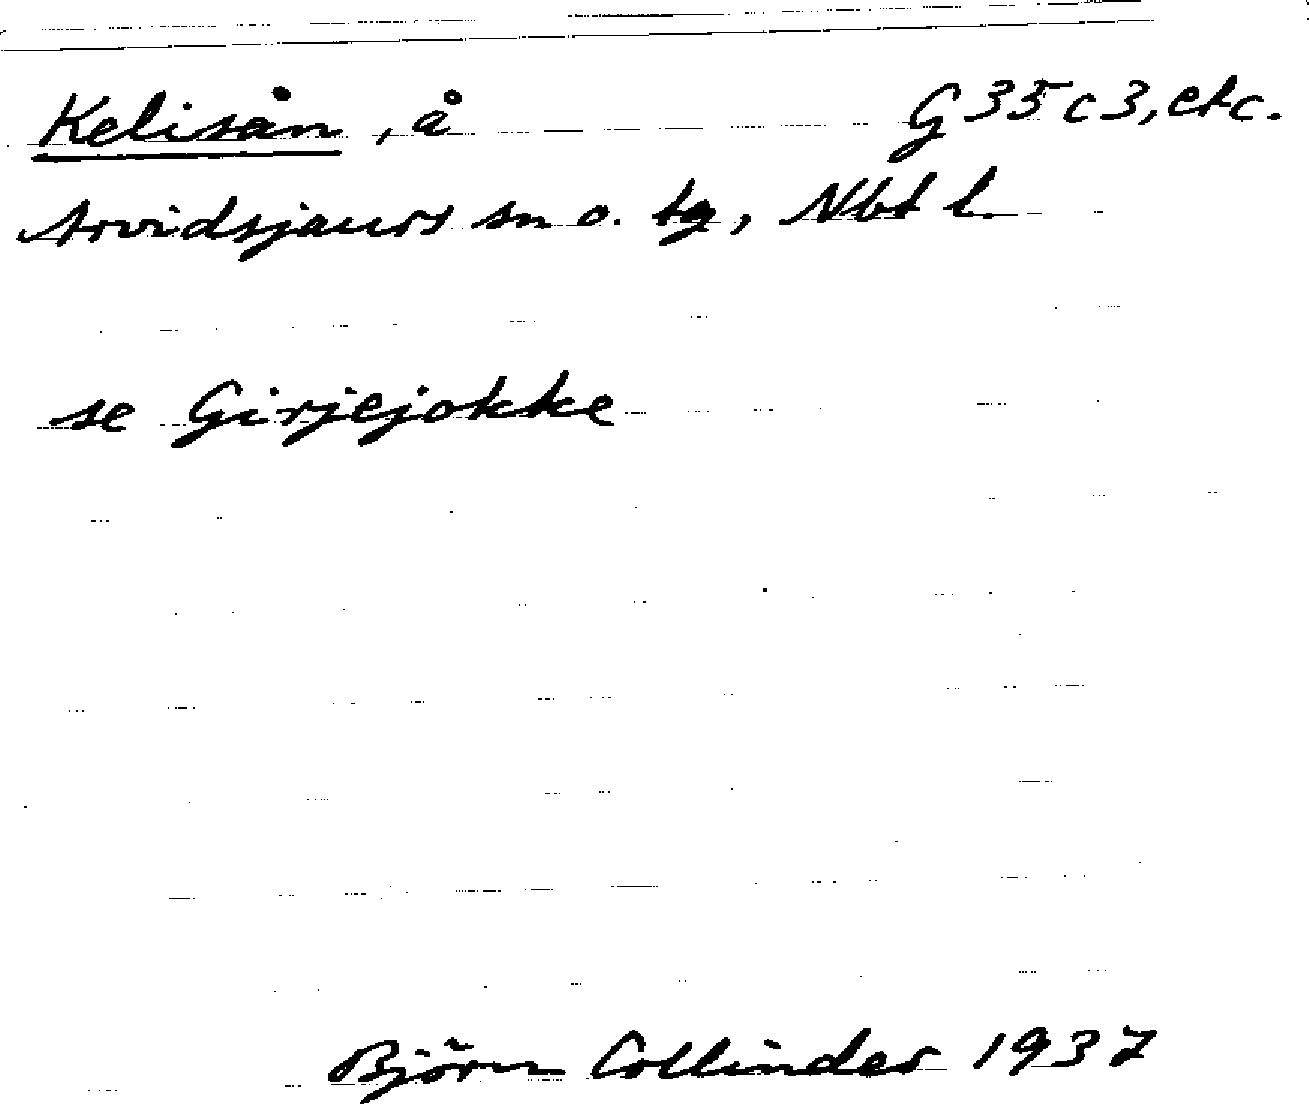 Kelisån, å G 35 c 3, etc.
Arvidsjaurs sn o. tg, Nbt l.
se Girjejokke
Björn Collinder 1937